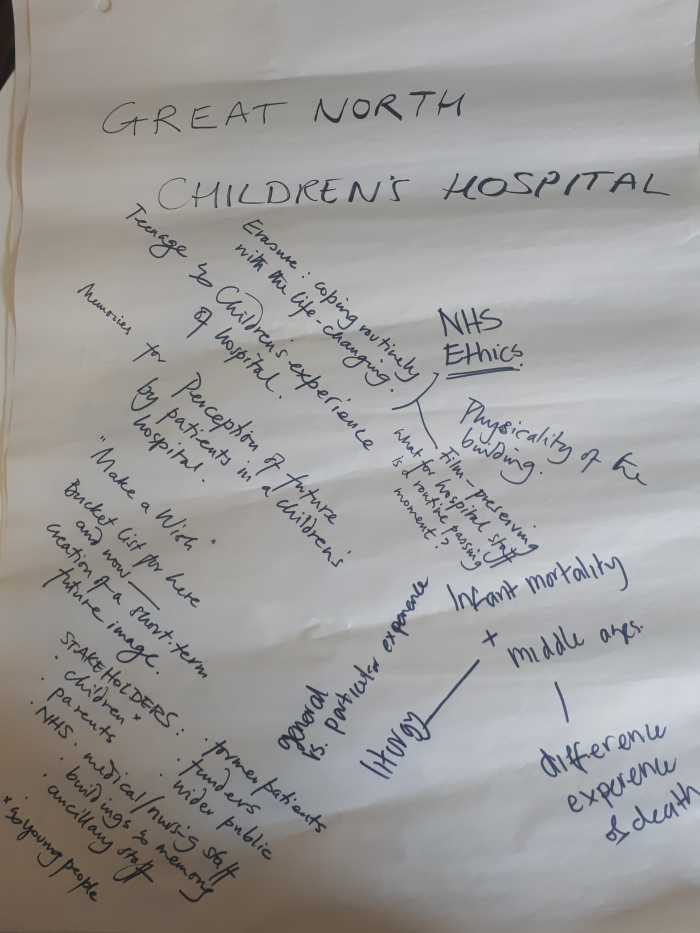 GREAT NORTH
CHILDREN'S HOSPITAL
Erasure: coping routinely
with the life-changing.
Teenage & Children's experience
of hospital.
Memories for
Perception of future
by patients in a children's
hospital.
NHS
Ethics.
Physicality of the
building.
Film-preserving
what for hospital staff
is a routine passing
moment?
"Make a Wish"
Bucket list for here
and now —
creation of a short-term
future image.
Infant mortality
+
middle ages.
general
vs. particular experience
liturgy
difference
experence
of death
STAKEHOLDERS:
· children *
· parents
· NHS · medical/nursing staff
· buildings & memory
· ancillary staff
* & young people
· former patients
· funders
· wider public